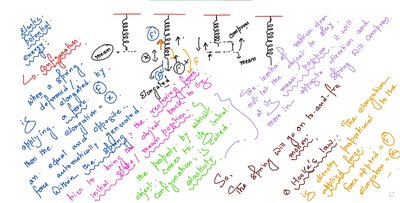 Elastic
Potential
energy:
↳ Configuration
When a spring
is deformed
or elongated by
applying a force (F)
then the elongation (x)
an equal and opposite
force automatically generated
within the spring
tries to bring the
initial state/
restoring force
object back to its
mean position
The property by which
object comes to its initial
configuration is called
elasticity.
mean
(x)
(F)
(x)
F
Elongated
compress
mean
The inertia of motion does
not let the object to stay
at its mean position it will
move in opposite direction and
spring will compress
So,
The spring will go on to and fro
motion.
Hooke's law:
The elongation
is directly proportional to the
applied force
force applied = (F)
elongation = (x)